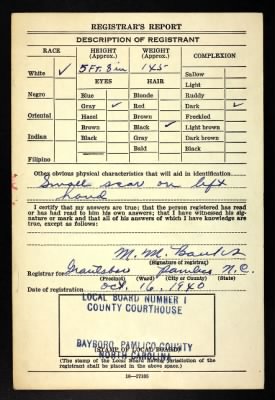 REGISTRAR'S REPORT
DESCRIPTION OF REGISTRANT
RACE HEIGHT (Approx.) WEIGHT (Approx.) COMPLEXION
White ✓ 5 Ft. 8 in 145 Sallow
Light
EYES HAIR
Negro Blue Blonde Ruddy
Gray ✓ Red Dark ✓
Oriental Hazel Brown Freckled
Brown Black ✓ Light brown
Indian Black Gray Dark brown
Bald Black
Filipino
Other obvious physical characteristics that will aid in identification
Small scar on left
hand
I certify that my answers are true; that the person registered has read
or has had read to him his own answers; that I have witnessed his sig-
nature or mark and that all of his answers of which I have knowledge are
true, except as follows:
M. M. Banks
(Signature of registrar)
Registrar for Grantsboro Pamlico N.C.
(Precinct) (Ward) (City or County) (State)
Date of registration Oct. 16, 1940
LOCAL BOARD NUMBER 1
COUNTY COURTHOUSE
BAYBORO, PAMLICO COUNTY
NORTH CAROLINA
(STAMP OF LOCAL BOARD)
(The stamp of the Local Board having jurisdiction of the
registrant shall be placed in the above space.)
16—17105